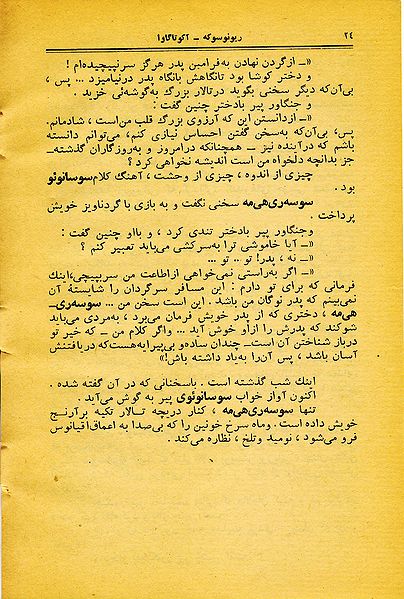 ۲۴ ریونوسوکه ــ آکوتاگاوا
«ــ ازگردن نهادن به‌فرامین پدر هرگز سرنپیچیده‌ام !
و دختر کوشا بود تانگاهش بانگاه پدر درنیامیزد ... پس ،
بی‌آن‌که دیگر سخنی بگوید درتالار بزرگ به‌گوشه‌ئی خزید .
و جنگاور پیر بادختر چنین گفت :
«ــ ازدانستن این که آرزوی بزرگ قلب من‌است ، شادمانم.
پس، بی‌آن‌که به‌سخن گفتن احساس نیازی کنم، می‌توانم دانسته
باشم که درآینده نیز ــ همچنانکه درامروز و به‌روزگاران گذشته‌ــ
جز بدانچه دلخواه من است اندیشه نخواهی کرد ؟
چیزی از اندوه ، چیزی از وحشت ، آهنگ کلام سوسانوئو
بود .
سوسه‌ری‌هی‌مه سخنی نگفت و به بازی با گردناویز خویش
پرداخت .
وجنگاور پیر بادختر تندی کرد ، و بااو چنین گفت :
«ــ آیا خاموشی ترا به‌سرکشی می‌باید تعبیر کنم ؟
«ــ نه ، پدر! تو .. تو ...
«ــ اگر به‌راستی نمی‌خواهی ازاطاعت من سرپیچی، اینك
فرمانی که برای تو دارم : این مسافر سرگردان را شایستهٔ آن
نمی‌بینم که پدر نوگان من باشد . این است سخن من ... سوسه‌ری‌ــ
هی‌مه ، دختری که از پدر خویش فرمان می‌برد ، به‌مردی می‌باید
شوکند که پدرش را ازاو خوش آید ... واگر کلام من ــ که خیر تو
درباز شناختن آن است‌ــ چندان ساده‌و بی‌پیرایه‌هست‌که دریافتنش
آسان باشد ، پس آن‌را به‌یاد داشته باش!»
اینك شب گذشته است . باسخنانی که در آن گفته شده .
اکنون آواز خواب سوسانوئوی پیر به گوش می‌آید .
تنها سوسه‌ری‌هی‌مه ، کنار دریچه تالار تکیه برآرنج
خویش داده است . وماه سرخ خونین را که بی‌صدا به اعماق‌اقیانوس
فرو می‌شود ، نومید وتلخ ، نظاره می‌کند .